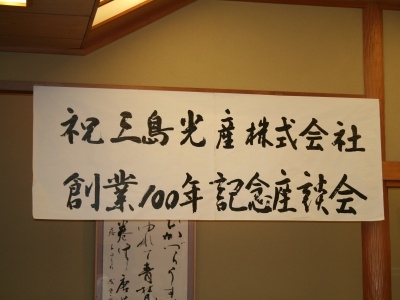 祝三島光産株式会社
創業100年記念座談会